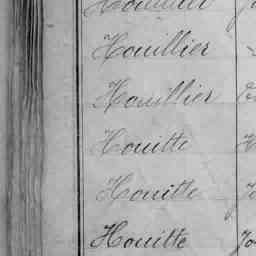 Houillier
Houillier
Houitte
Houitte
Houitte